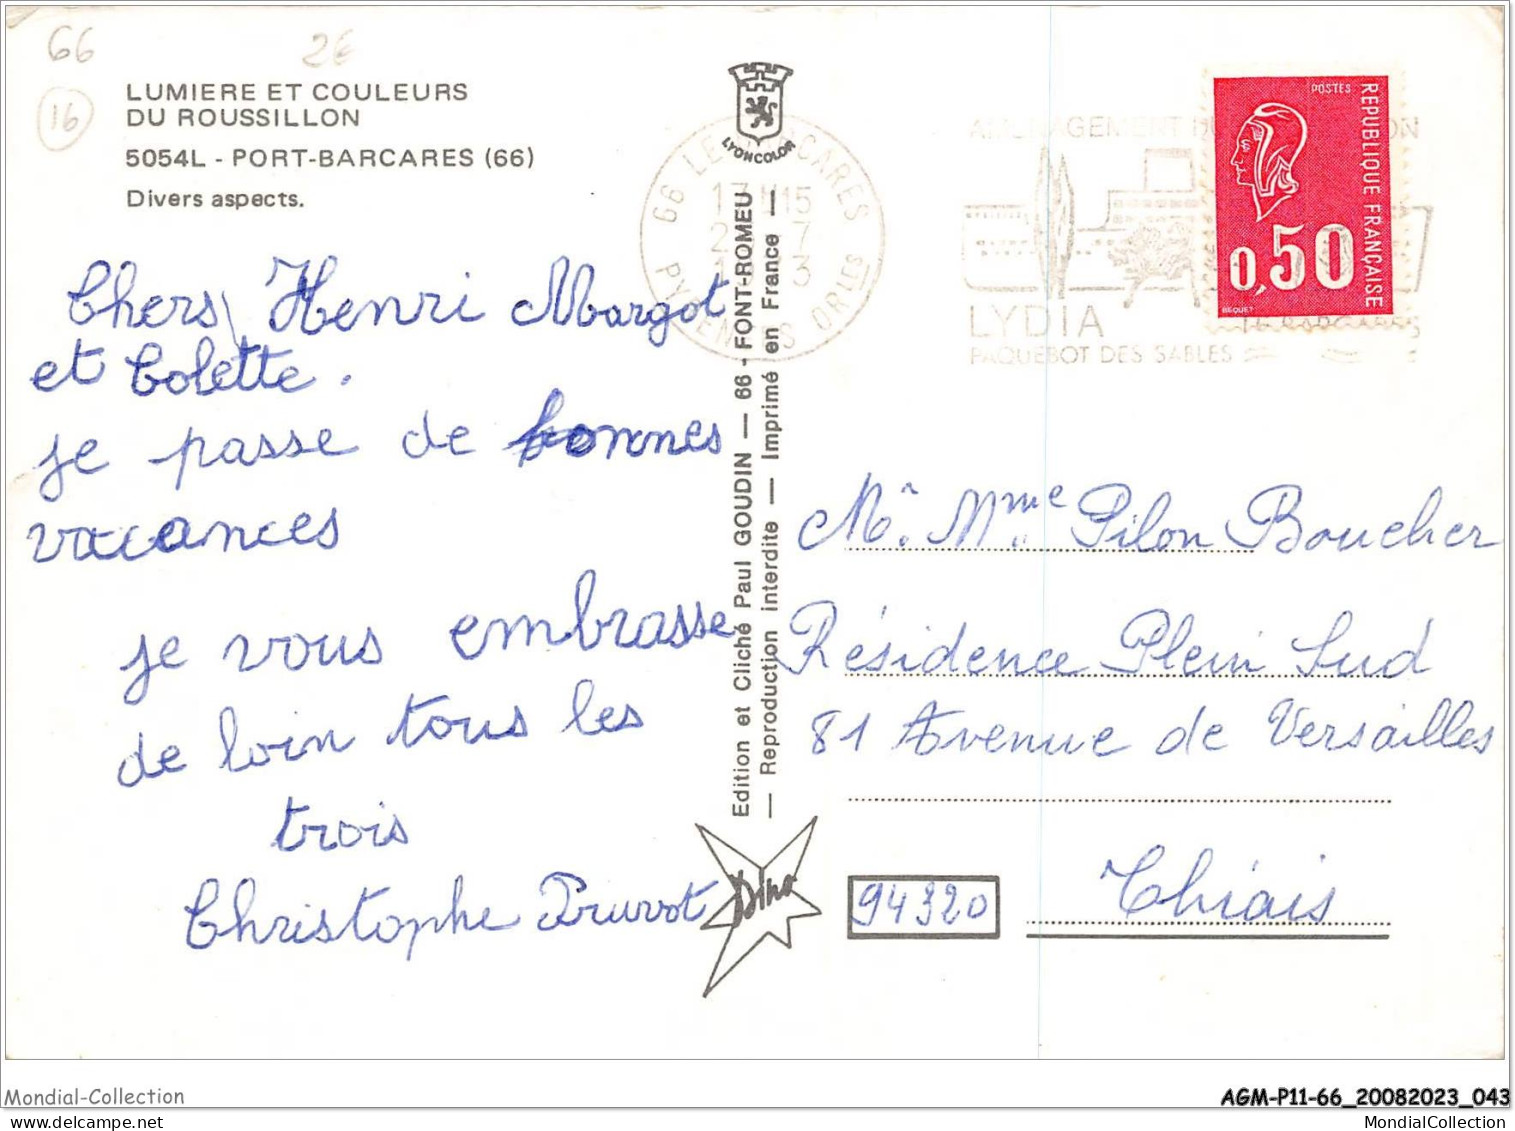 66
2€
16
LUMIERE ET COULEURS
DU ROUSSILLON
5054L - PORT-BARCARES (66)
Divers aspects.
Chers Henri Margot
et Colette.
je passe de bonnes
vacances
je vous embrasse
de loin tous les
trois
Christophe Pruvot
LYONCOLOR
Edition et Cliché Paul GOUDIN — 66 - FONT-ROMEU
— Reproduction interdite — Imprimé en France —
Dino
66 LE BARCARES
17H15
PYRENEES ORLES
LYDIA
PAQUEBOT DES SABLES
POSTES
REPUBLIQUE FRANÇAISE
0,50
BEQUET
Mr. Mme Pilon Boucher
Résidence Plein Sud
81 Avenue de Versailles
94320
Thiais
Mondial-Collection
AGM-P11-66_20082023_043
mondial-collection.delcampe.net
MondialCollection